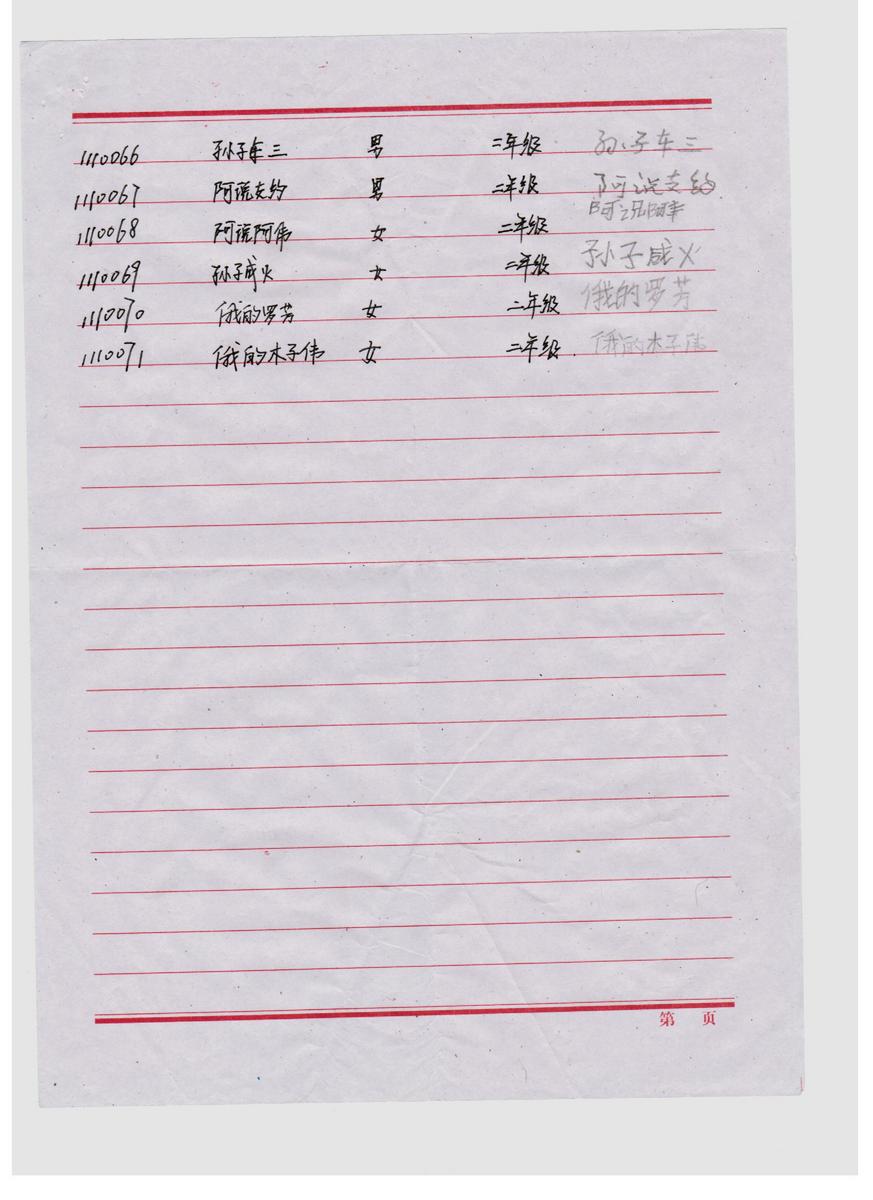 1110066 孙子车三 男 二年级 孙子车三
1110067 阿说支约 男 二年级 阿说支约
1110068 阿说阿伟 女 二年级 阿说阿
1110069 孙子威火 女 二年级 孙子威火
1110070 俄的罗芳 女 二年级 俄的罗芳
1110071 俄的木子伟 女 二年级. 俄的木子伟
第 页